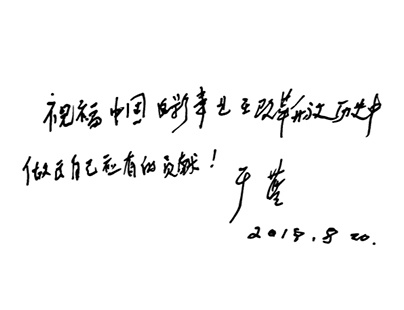 祝福中国电影事业在改革开放历史中
做出自己应有的贡献！
于蓝
2018.8.20.